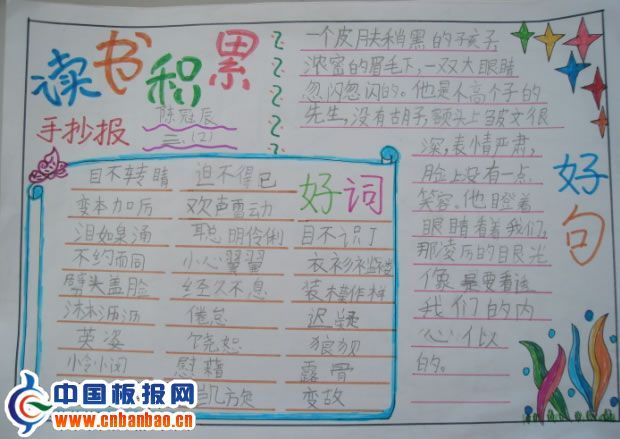 读书积累
手抄报
陈冠辰
三.(2)
好词
目不转睛 迫不得已
变本加厉 欢声雷动
泪如泉涌 聪明伶俐 目不识丁
不约而同 小心翼翼 衣衫褴褛
劈头盖脸 经久不息 装模作样
沐沐洒洒 倦怠 迟疑
英姿 饶恕 狼狈
慰藉 露骨
凯旋 变故
一个皮肤稍黑的孩子,
浓密的眉毛下,一双大眼睛
忽闪忽闪的。他是不高个子的
先生,没有胡子,额头上皱文很
深,表情严肃,
脸上没有一点
笑容。他瞪着
眼睛看着我们,
那凌厉的目光
像是要看透
我们的内
心似
的。
好句
中国板报网
www.cnbanbao.cn